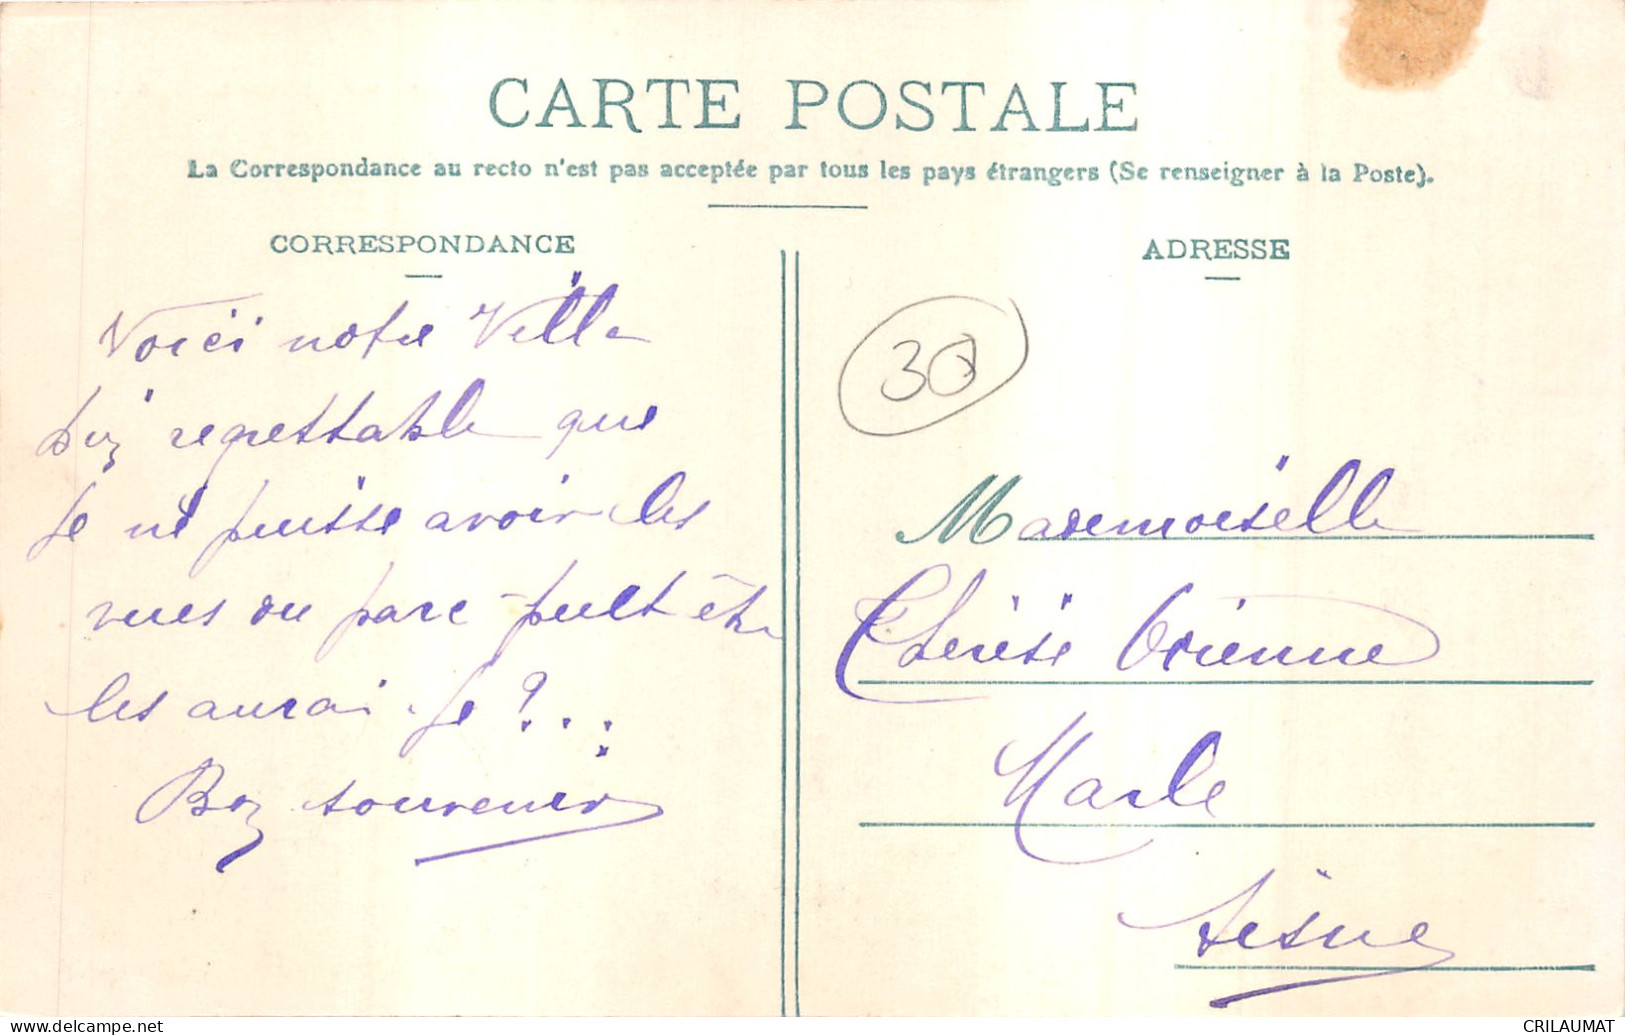 CARTE POSTALE
La Correspondance au recto n'est pas acceptée par tous les pays étrangers (Se renseigner à la Poste).
CORRESPONDANCE
Voici notre Ville
bien regrettable que
je ne puisse avoir les
vues du parc peut être
les aurai-je ?...
Bon souvenir
ADRESSE
30
Mademoiselle
Thérèse
Marle
Aisne
www.delcampe.net
CRILAUMAT